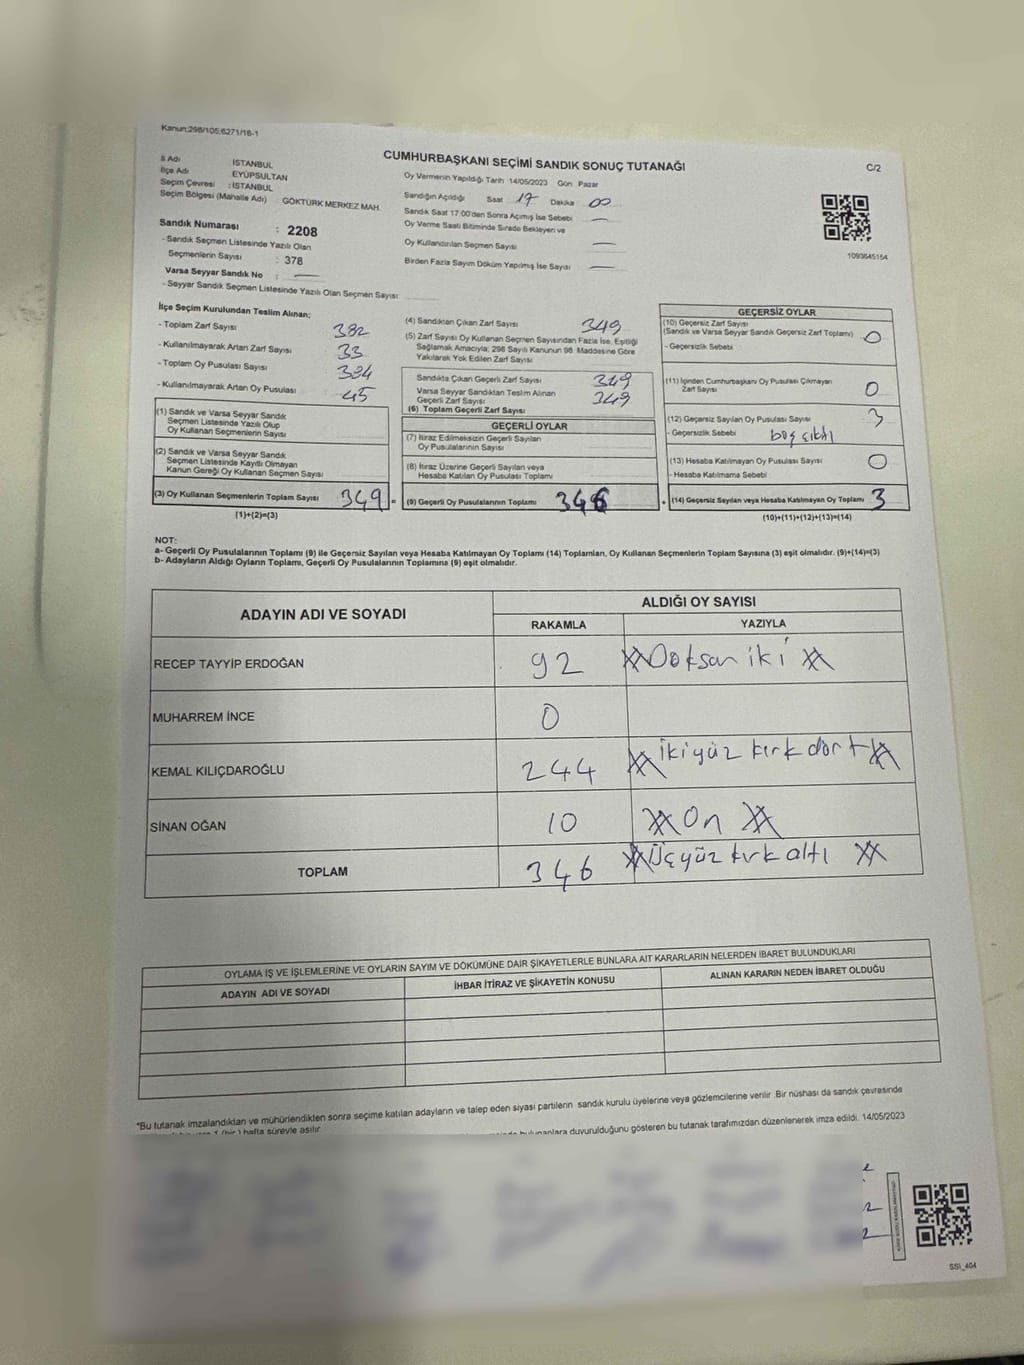 Kanun;298/105;6271/16-1
CUMHURBAŞKANI SEÇİMİ SANDIK SONUÇ TUTANAĞI
C/2
İl Adı İSTANBUL
İlçe Adı EYÜPSULTAN
Seçim Çevresi : İSTANBUL
Seçim Bölgesi (Mahalle Adı) : GÖKTÜRK MERKEZ MAH.
Oy Vermenin Yapıldığı Tarih 14/05/2023 Gün Pazar
Sandığın Açıldığı Saat 17 Dakika 00
Sandık Saat 17.00'den Sonra Açılmış İse Sebebi —
Oy Verme Saati Bitiminde Sırada Bekleyen ve
Oy Kullandırılan Seçmen Sayısı —
Birden Fazla Sayım Döküm Yapılmış İse Sayısı —
1093645154
Sandık Numarası : 2208
- Sandık Seçmen Listesinde Yazılı Olan
Seçmenlerin Sayısı : 378
Varsa Seyyar Sandık No : —
- Seyyar Sandık Seçmen Listesinde Yazılı Olan Seçmen Sayısı:
İlçe Seçim Kurulundan Teslim Alınan;
- Toplam Zarf Sayısı 382
- Kullanılmayarak Artan Zarf Sayısı 33
- Toplam Oy Pusulası Sayısı 384
- Kullanılmayarak Artan Oy Pusulası 45
(1) Sandık ve Varsa Seyyar Sandık
Seçmen Listesinde Yazılı Olup
Oy Kullanan Seçmenlerin Sayısı
(2) Sandık ve Varsa Seyyar Sandık
Seçmen Listesinde Kayıtlı Olmayan
Kanun Gereği Oy Kullanan Seçmen Sayısı
(3) Oy Kullanan Seçmenlerin Toplam Sayısı 349 =
(1)+(2)=(3)
(4) Sandıktan Çıkan Zarf Sayısı 349
(5) Zarf Sayısı Oy Kullanan Seçmen Sayısından Fazla İse, Eşitliği
Sağlamak Amacıyla; 298 Sayılı Kanunun 98. Maddesine Göre
Yakılarak Yok Edilen Zarf Sayısı
Sandıkta Çıkan Geçerli Zarf Sayısı 349
Varsa Seyyar Sandıktan Teslim Alınan
Geçerli Zarf Sayısı 349
(6) Toplam Geçerli Zarf Sayısı
GEÇERLİ OYLAR
(7) İtiraz Edilmeksizin Geçerli Sayılan
Oy Pusulalarının Sayısı
(8) İtiraz Üzerine Geçerli Sayılan veya
Hesaba Katılan Oy Pusulası Toplamı
(9) Geçerli Oy Pusulalarının Toplamı 346 +
GEÇERSİZ OYLAR
(10) Geçersiz Zarf Sayısı
(Sandık ve Varsa Seyyar Sandık Geçersiz Zarf Toplamı) 0
- Geçersizlik Sebebi
(11) İçinden Cumhurbaşkanı Oy Pusulası Çıkmayan
Zarf Sayısı 0
(12) Geçersiz Sayılan Oy Pusulası Sayısı 3
- Geçersizlik Sebebi boş çıktı
(13) Hesaba Katılmayan Oy Pusulası Sayısı 0
- Hesaba Katılmama Sebebi
(14) Geçersiz Sayılan veya Hesaba Katılmayan Oy Toplamı 3
(10)+(11)+(12)+(13)=(14)
NOT:
a- Geçerli Oy Pusulalarının Toplamı (9) ile Geçersiz Sayılan veya Hesaba Katılmayan Oy Toplamı (14) Toplamları, Oy Kullanan Seçmenlerin Toplam Sayısına (3) eşit olmalıdır. (9)+(14)=(3)
b- Adayların Aldığı Oyların Toplamı, Geçerli Oy Pusulalarının Toplamına (9) eşit olmalıdır.
ADAYIN ADI VE SOYADI
ALDIĞI OY SAYISI
RAKAMLA YAZIYLA
RECEP TAYYİP ERDOĞAN 92 Doksan iki
MUHARREM İNCE 0
KEMAL KILIÇDAROĞLU 244 İkiyüz kırk dört
SİNAN OĞAN 10 On
TOPLAM 346 Üçyüz kırk altı
OYLAMA İŞ VE İŞLEMLERİNE VE OYLARIN SAYIM VE DÖKÜMÜNE DAİR ŞİKAYETLERLE BUNLARA AİT KARARLARIN NELERDEN İBARET BULUNDUKLARI
ADAYIN ADI VE SOYADI İHBAR İTİRAZ VE ŞİKAYETİN KONUSU ALINAN KARARIN NEDEN İBARET OLDUĞU
*Bu tutanak imzalandıktan ve mühürlendikten sonra seçime katılan adayların ve talep eden siyasi partilerin sandık kurulu üyelerine veya gözlemcilerine verilir. Bir nüshası da sandık çevresinde
1 (bir) hafta süreyle asılır. bulunanlara duyurulduğunu gösteren bu tutanak tarafımızdan düzenlenerek imza edildi. 14/05/2023
SSI_404